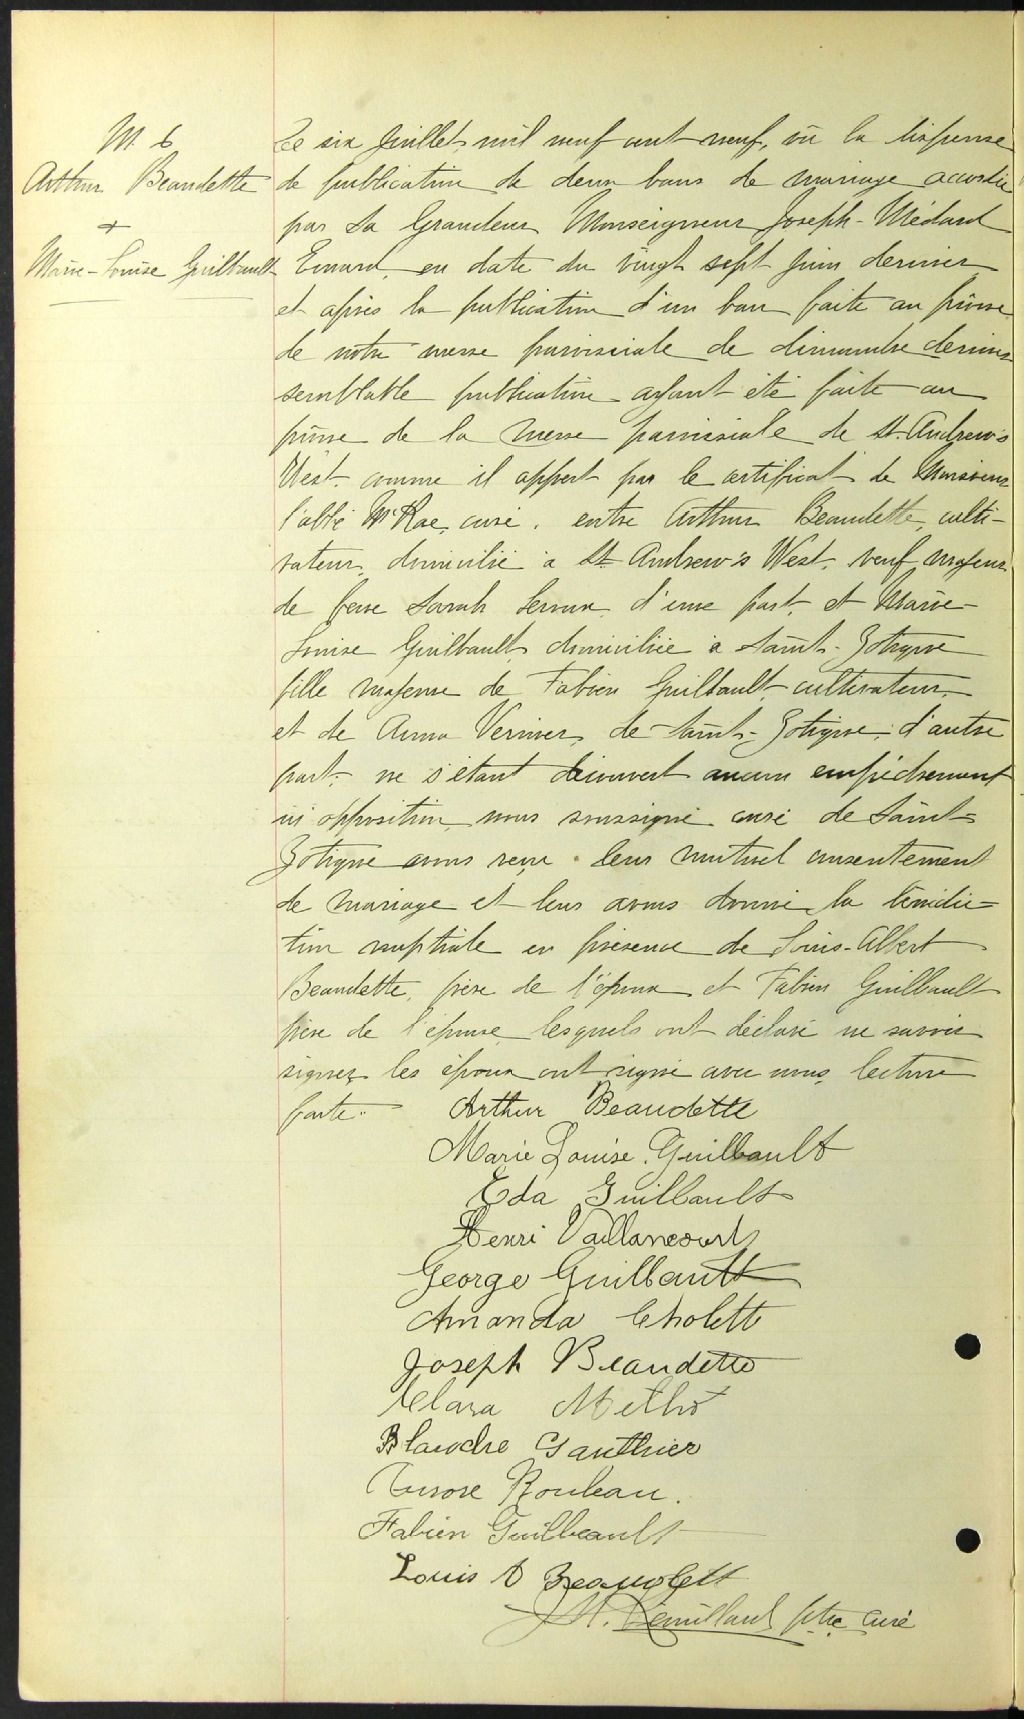 M. 6
Arthur Beaudette
+
Marie-Louise Guilbault
Le six Juillet mil neuf cent neuf, vu la dispense
de publication de deux bans de mariage accordée
par Sa Grandeur Monseigneur Joseph-Médard
Emard, en date du vingt sept juin dernier
et après la publication d'un ban faite au prône
de notre messe paroissiale de dimanche dernier
semblable publication ayant été faite au
prône de la messe paroissiale de St. Andrew's
West. comme il appert par le certificat de Monsieur
l'abbé McRae, curé, entre Arthur Beaudette, culti-
vateur, domicilié à St Andrew's West, veuf majeur
de feue Sarah Leroux d'une part, et Marie-
Louise Guilbault domiciliée à Saint-Zotique
fille majeure de Fabien Guilbault, cultivateur,
et de Anna Vernier, de Saint-Zotique, d'autre
part, ne s'étant découvert aucun empêchement
ni opposition, nous soussigné curé de Saint-
Zotique avons reçu leur mutuel consentement
de mariage et leur avons donné la bénédic-
tion nuptiale en présence de Louis-Albert
Beaudette, père de l'époux et Fabien Guilbault
père de l'épouse, lesquels ont déclaré ne savoir
signer, les époux ont signé avec nous, lecture
faite.
Arthur Beaudette
Marie Louise Guilbault
Eda Guilbault
Henri Vaillancourt
George Guilbault
Amanda Cholette
Joseph Beaudette
Clara Methot
Blanche Gauthier
Aurore Rouleau.
Fabien Guilbeault
Louis A Beaudett
Rémillard ptre curé